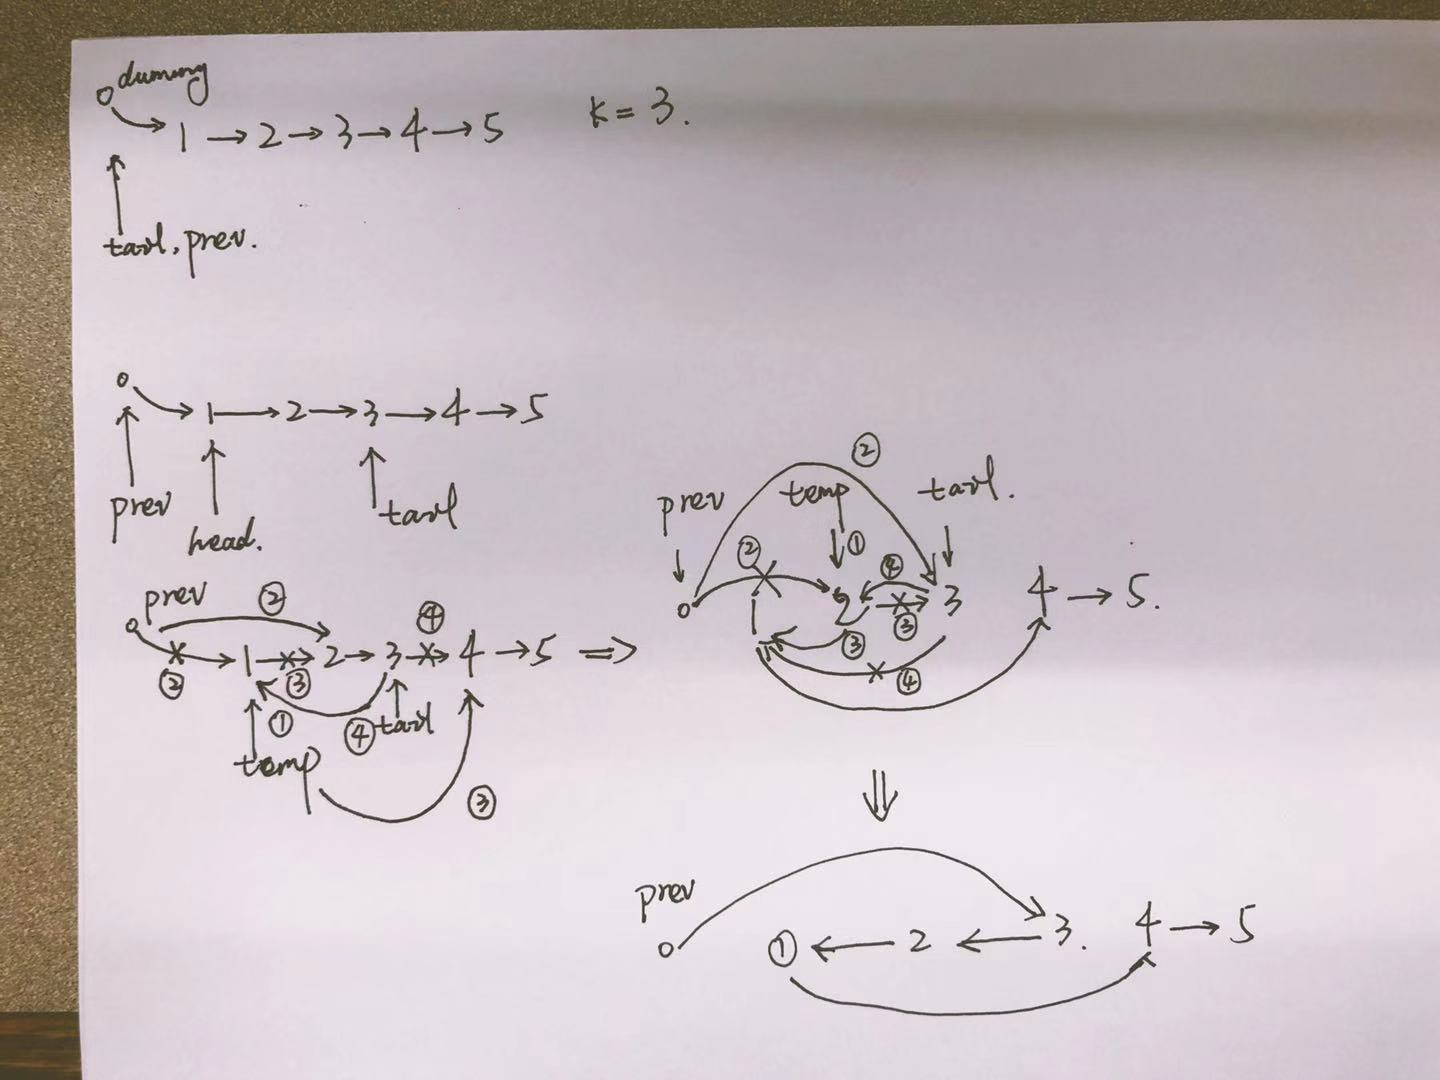 dummy
1 → 2 → 3 → 4 → 5
k = 3.
tail, prev.
1 → 2 → 3 → 4 → 5
prev
head.
tail
prev ②
1 → 2 → 3 → 4 → 5 ⇒
② ③ ④
① ④ tail
temp
③
②
prev temp tail.
② ① ②
1 2 → 3 4 → 5.
③ ③
④
⇓
prev
① ← 2 ← 3. 4 → 5